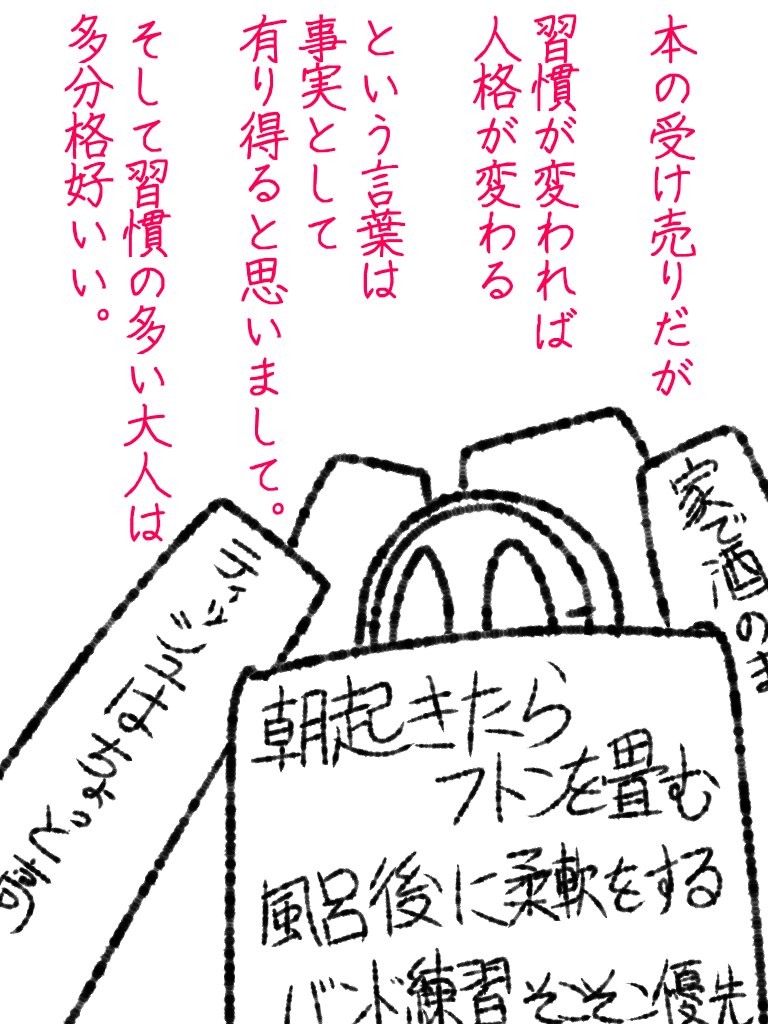 本の受け売りだが
習慣が変われば
人格が変わる
という言葉は
事実として
有り得ると思いまして。
そして習慣の多い大人は
多分格好いい。
家で酒のま
ティッシュはちょっと
朝起きたら
フトンを畳む
風呂後に柔軟をする
バンド練習そこそこ優先